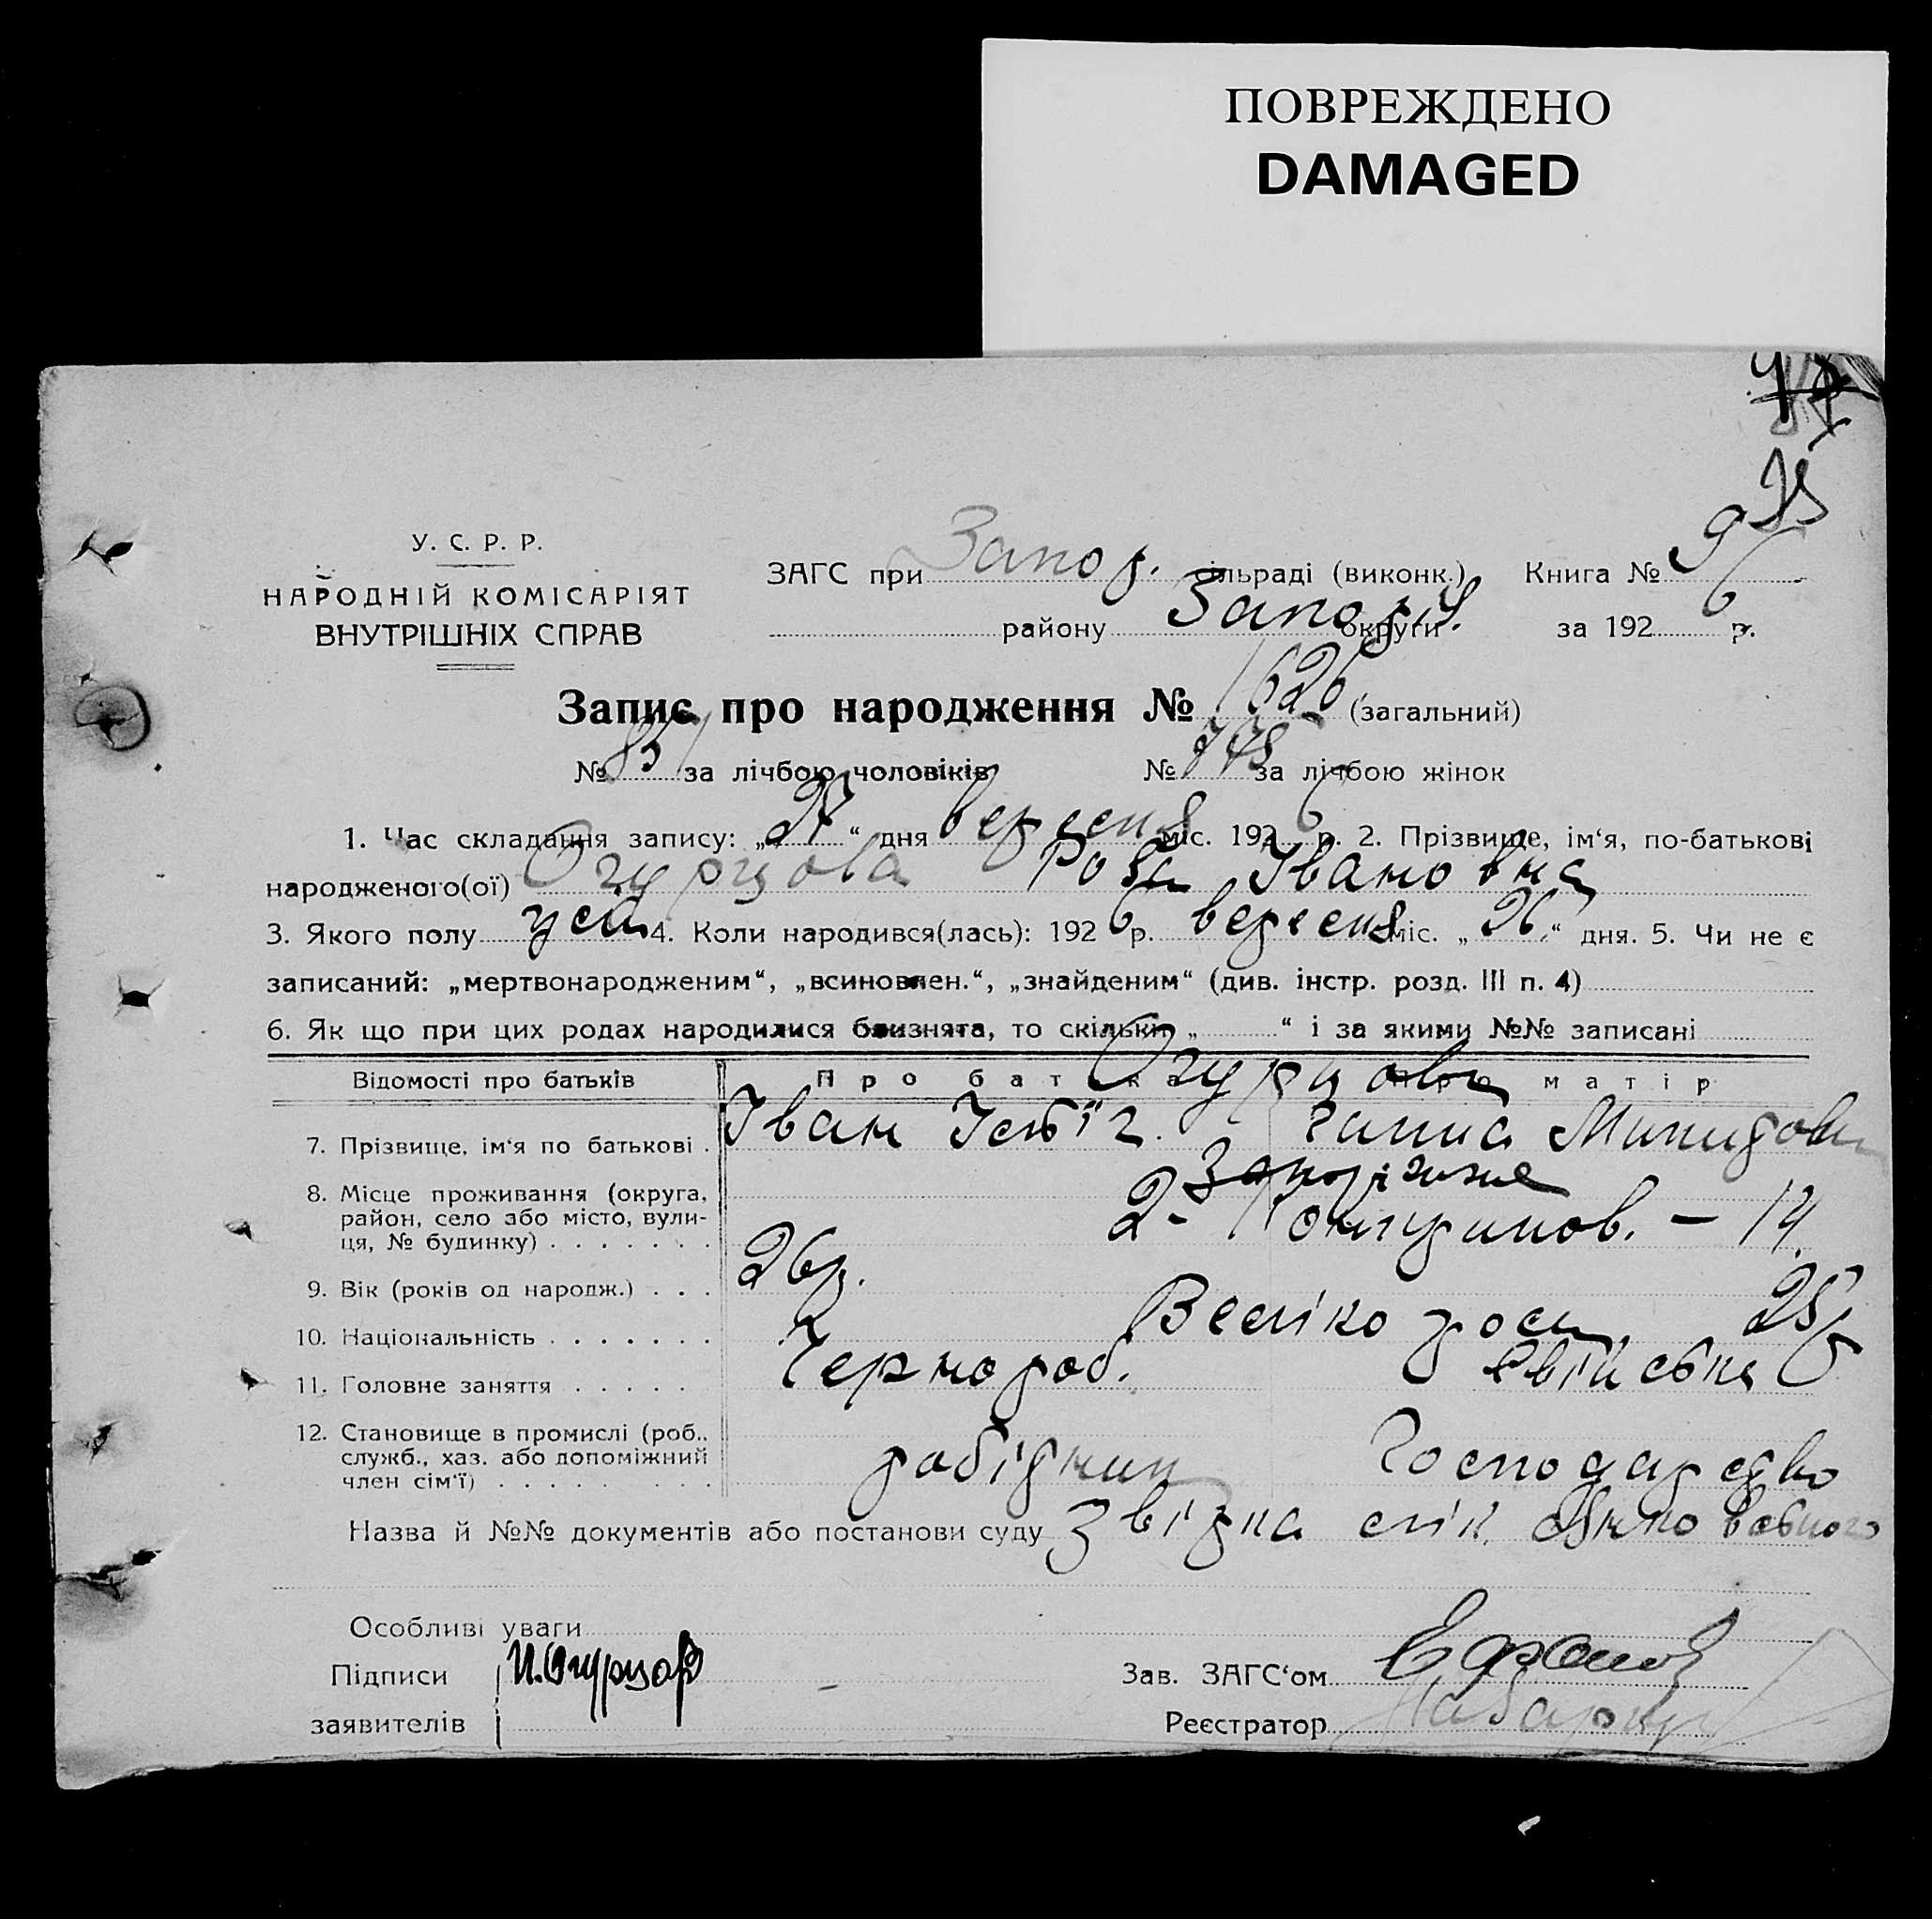 ПОВРЕЖДЕНО
DAMAGED
У. С. Р. Р.
НАРОДНІЙ КОМІСАРІЯТ
ВНУТРІШНІХ СПРАВ
ЗАГС при Запор. сільраді (виконк.) Книга № 9
району Запоріз. округи за 1926 р.
Запис про народження № 1626 (загальний)
№ 851 за лічбою чоловіків № 775 за лічбою жінок
1. Час складання запису: „27“ дня вересня міс. 1926 р. 2. Прізвище, ім‘я, по-батькові
народженого(ої) Огурцова Роза Івановна
3. Якого полу 4. Коли народився(лась): 1926 р. вересня міс. „26“ дня. 5. Чи не є
записаний: „мертвонародженим“, „всиновлен.“, „знайденим“ (див. інстр. розд. III п. 4)
6. Як що при цих родах народилися близнята, то скільки „ “ і за якими №№ записані
Відомості про батьків Про батька Про матір
Огурцови
7. Прізвище, ім‘я по батькові . Іван Ганна
8. Місце проживання (округа, район, село або місто, вулиця, № будинку) . . . . . . . Запоріжжя
9. Вік (років од народж.) . . . 26 р. 25
10. Національність . . . . . . . Велікорос.
11. Головне заняття . . . . . Чернороб. Свійське
12. Становище в промислі (роб., служб., хаз. або допоміжний член сім‘ї) . . . . . . . . робітник Господарство
Назва й №№ документів або постанови суду
Особливі уваги
Підписи И. Огурцов Зав. ЗАГС‘ом
заявителів Реєстратор